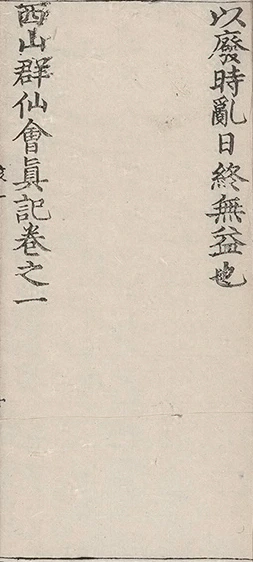 以廢時亂日終無益也
西山群仙會眞記卷之一